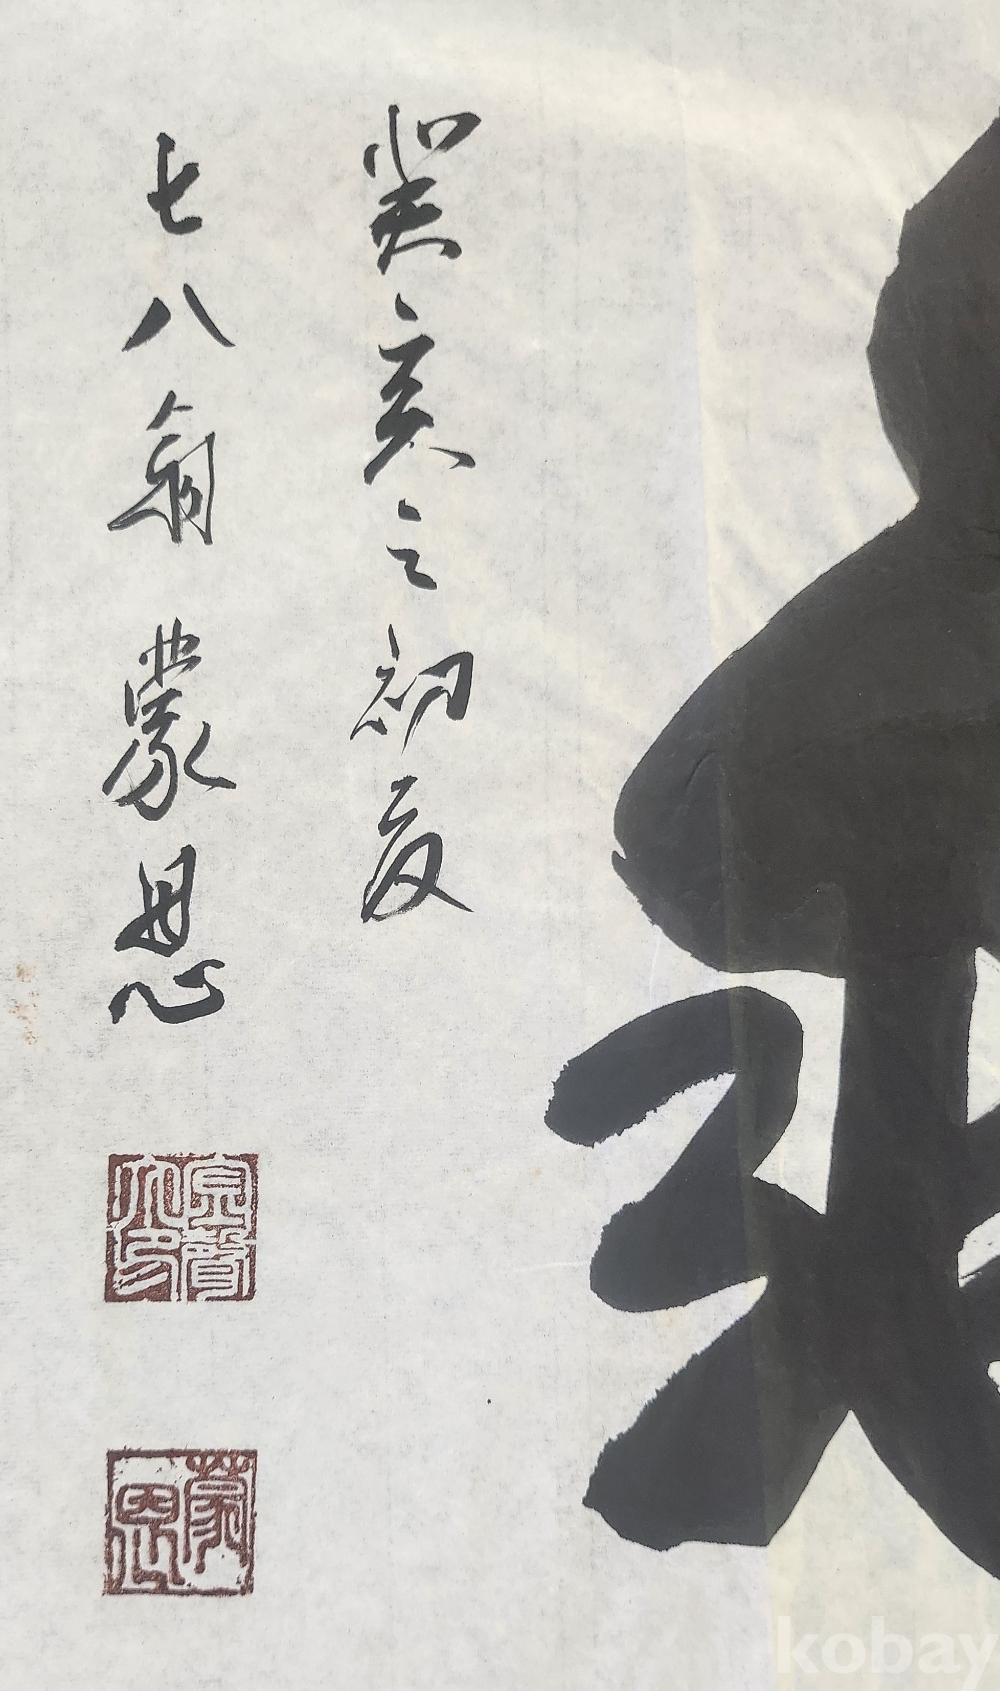 癸亥之初夏
七八翁 蒙恩
蒙恩
kobay